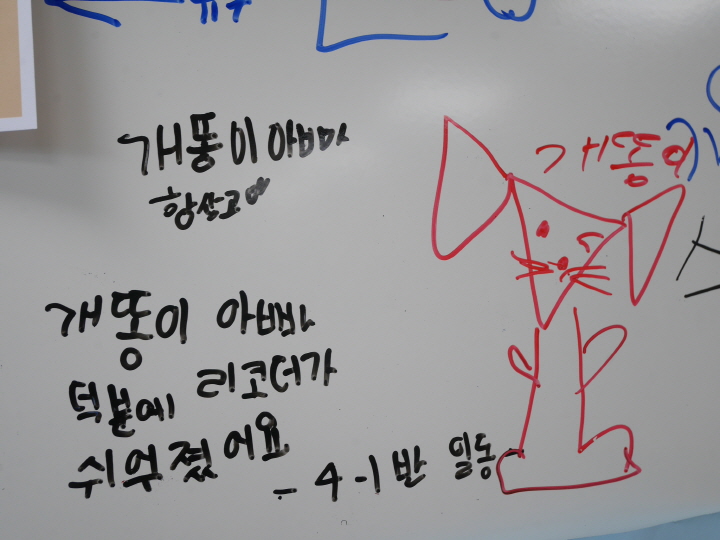 개똥이 아빠
항상고
개똥이
개똥이 아빠
덕분에 리코더가
쉬워졌어요
- 4-1반 일동